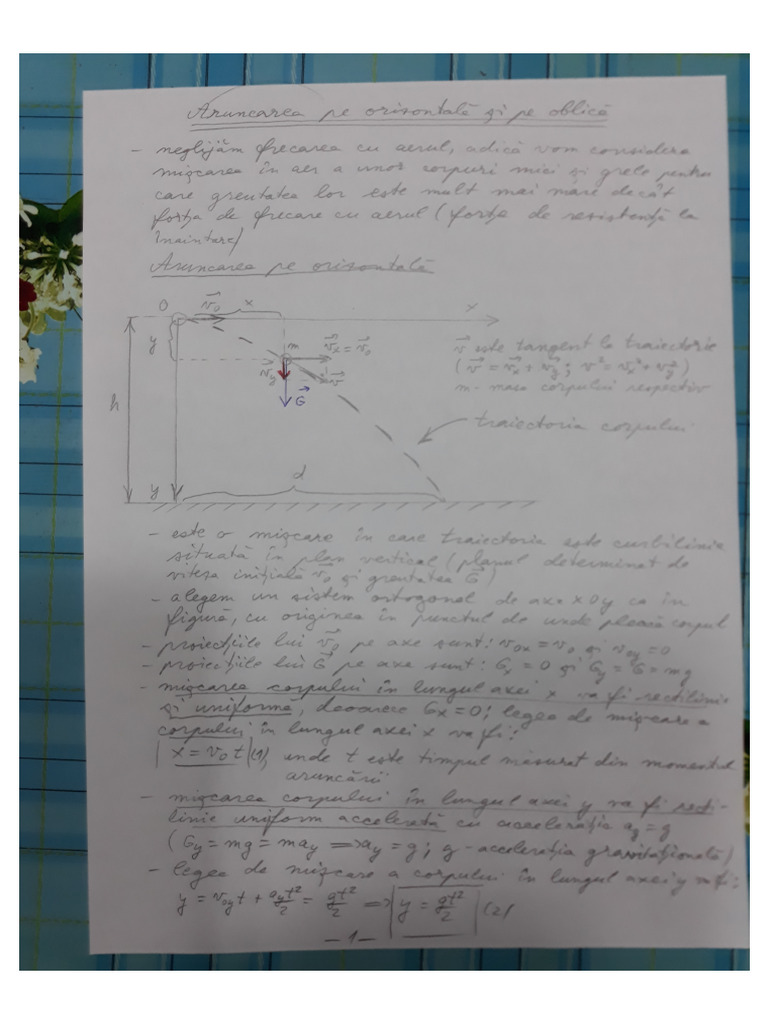 Aruncarea pe orizontală și pe oblică
- neglijăm frecarea cu aerul, adică vom considera
mișcarea în aer a unor corpuri mici și grele pentru
care greutatea lor este mult mai mare decât
forța de frecare cu aerul (forța de rezistență la
înaintare)
Aruncarea pe orizontală
O v₀ x x
y m vₓ = v₀
v_y v
G
h
y d
v este tangent la traiectorie
(v = v₀ + v_y; v² = v₀² + v_y²)
m - masa corpului respectiv
traiectoria corpului
- este o mișcare în care traiectoria este curbilinie
situată în plan vertical (planul determinat de
viteza inițială v₀ și greutatea G)
- alegem un sistem ortogonal de axe xOy ca în
figură, cu originea în punctul de unde pleacă corpul
- proiecțiile lui v₀ pe axe sunt: v₀ₓ = v₀ și v₀y = 0
- proiecțiile lui G pe axe sunt: Gₓ = 0 și G_y = G = mg
- mișcarea corpului în lungul axei x va fi rectilinie
și uniformă, deoarece Gₓ = 0; legea de mișcare a
corpului în lungul axei x va fi:
x = v₀ t (1), unde t este timpul măsurat din momentul
aruncării
- mișcarea corpului în lungul axei y va fi recti-
linie uniform accelerată cu accelerația a_y = g
(G_y = mg = ma_y => a_y = g; g - accelerația gravitațională)
- legea de mișcare a corpului în lungul axei y va fi:
y = v₀y t + a_y t²/2 = gt²/2 => y = gt²/2 (2)
- 1 -